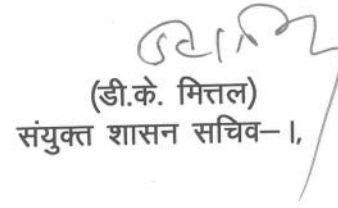 (डी.के. मित्तल)
संयुक्त शासन सचिव– ।,